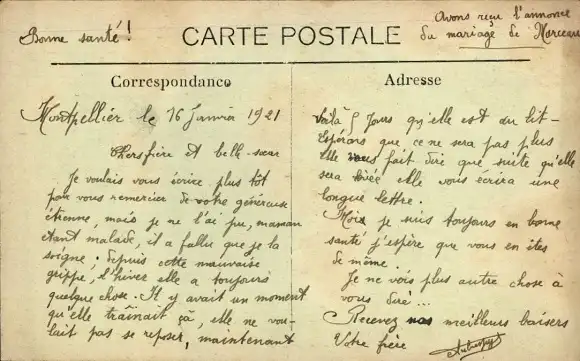 Bonne santé!
CARTE POSTALE
Avons reçu l'annonce
du mariage de Marceau
Correspondance
Montpellier le 16 Janvier 1921
Chers frère et belle-sœur
Je voulais vous écrire plus tôt
pour vous remercier de votre généreuse
étrenne, mais je ne l'ai pu, maman
étant malade, il a fallu que je la
soigne; depuis cette mauvaise
grippe, l'hiver elle a toujours
quelque chose. Il y avait un moment
qu'elle traînait ça, elle ne vou-
lait pas se reposer, maintenant
Adresse
voilà 5 jours qu'elle est au lit-
Espérons que ce ne sera pas plus
Elle vous fait dire que suite qu'elle
sera levée elle vous écrira une
longue lettre.
Moi je suis toujours en bonne
santé j'espère que vous en êtes
de même.
Je ne vois plus autre chose à
vous dire...
Recevez nos meilleurs baisers
Votre frère